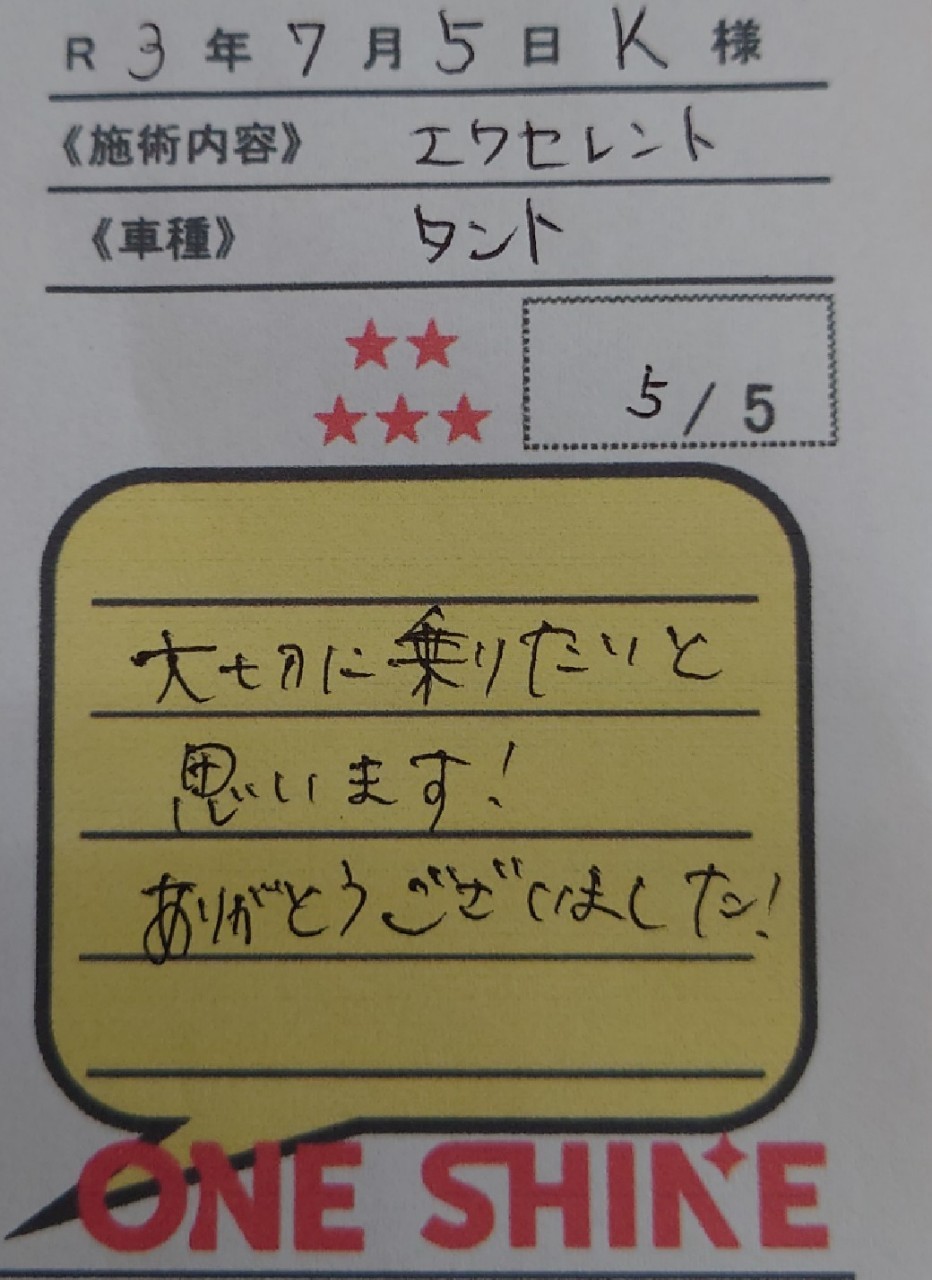 R 3 年 7 月 5 日 K 様
《施術内容》 エクセレント
《車種》 タント
★★
★★★ 5 / 5
大切に乗りたいと
思います!
ありがとうございました!
ONE SHINE